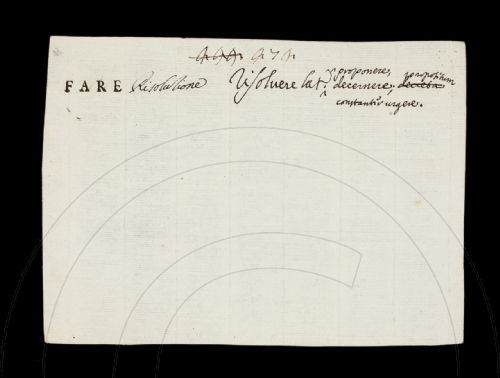 FARE Risolutione Risolvere lat. proponere,
decernere, propositum
constantiùs urgere.